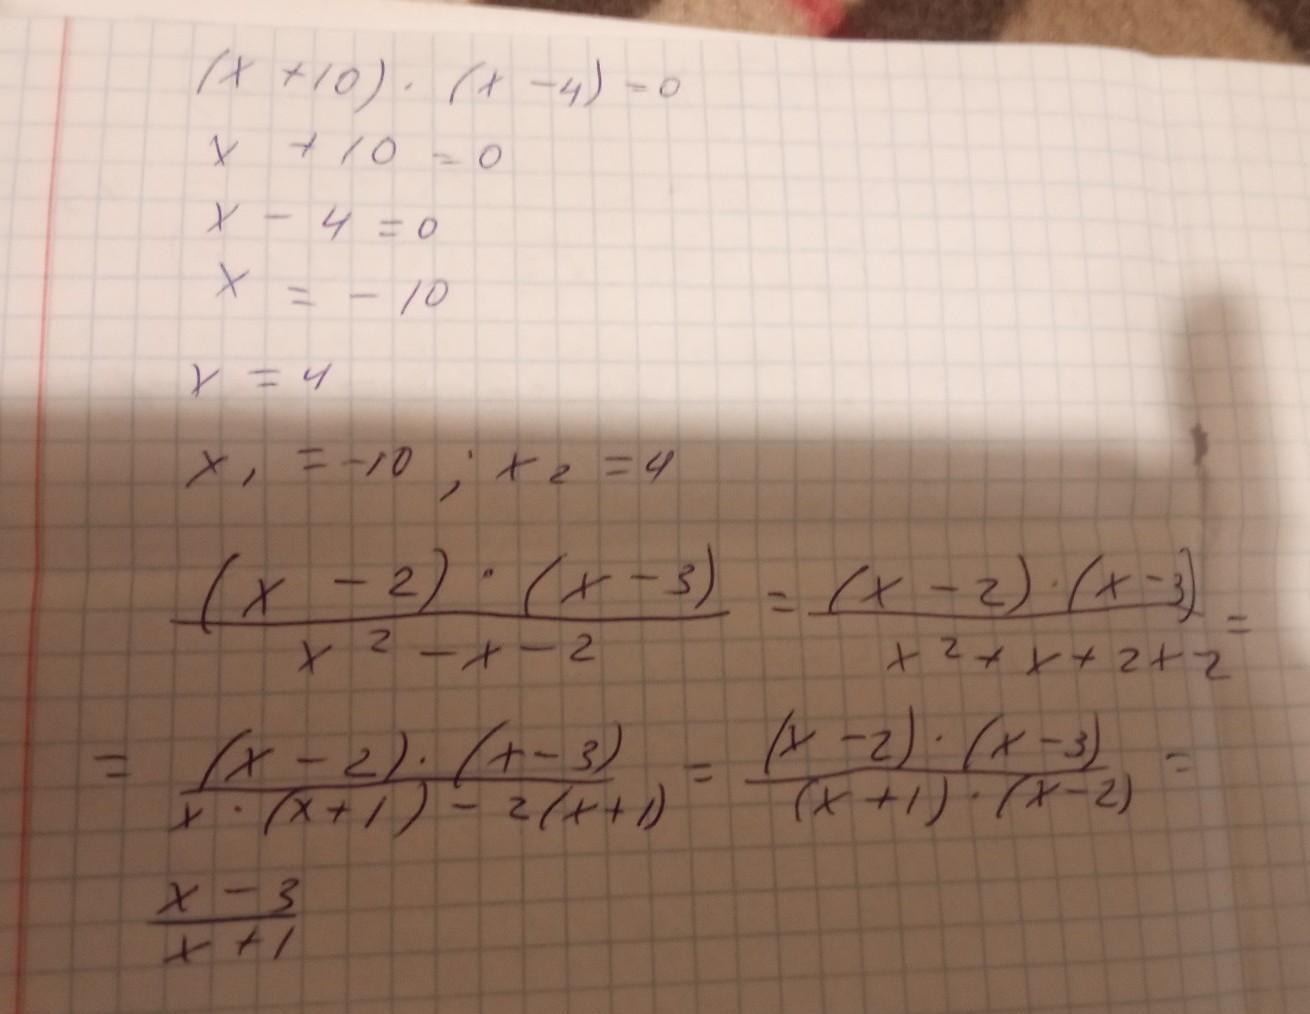 (x + 10) · (x - 4) = 0
x + 10 = 0
x - 4 = 0
x = - 10
x = 4
x₁ = -10 ; x₂ = 4
(x - 2) · (x - 3) / x² - x - 2 = (x - 2) · (x - 3) / x² + x + 2 + 2 =
= (x - 2) · (x - 3) / x · (x + 1) - 2(x + 1) = (x - 2) · (x - 3) / (x + 1) · (x - 2) =
x - 3 / x + 1